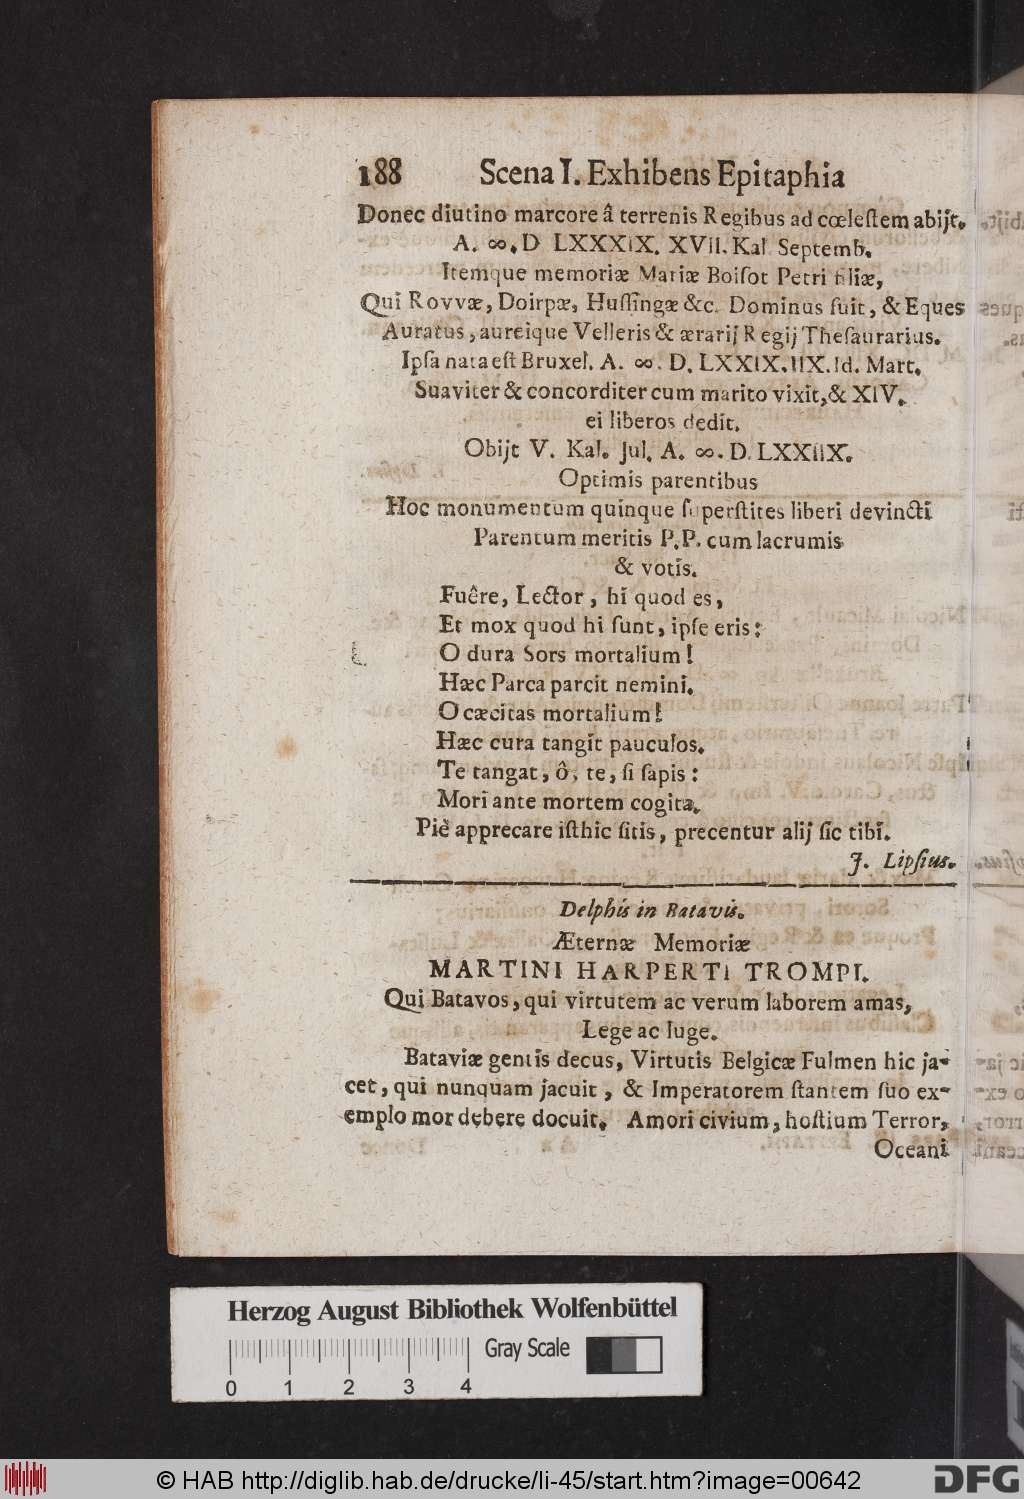 188 Scena I. Exhibens Epitaphia
Donec diutino marcore â terrenis Regibus ad cœleſtem abijt.
A. ∞. D LXXXIX. XVII. Kal Septemb.
Itemque memoriæ Mariæ Boiſot Petri filiæ,
Qui Rovvæ, Doirpæ, Huſſingæ &c. Dominus fuit, & Eques
Auratus, aureique Velleris & ærarij Regij Theſaurarius.
Ipſa nata eſt Bruxel. A. ∞. D. LXXIX. IIX. Id. Mart.
Suaviter & concorditer cum marito vixit, & XIV.
ei liberos dedit.
Obijt V. Kal. Jul. A. ∞. D. LXXIIX.
Optimis parentibus
Hoc monumentum quinque ſuperſtites liberi devincti
Parentum meritis P. P. cum lacrumis
& votis.
Fuêre, Lector, hi quod es,
Et mox quod hi ſunt, ipſe eris:
O dura Sors mortalium!
Hæc Parca parcit nemini.
O cæcitas mortalium!
Hæc cura tangit pauculos.
Te tangat, ô, te, ſi ſapis:
Mori ante mortem cogita.
Piè apprecare iſthic ſitis, precentur alij ſic tibi.
J. Lipſius.
Delphis in Batavis.
Æternæ Memoriæ
MARTINI HARPERTI TROMPI.
Qui Batavos, qui virtutem ac verum laborem amas,
Lege ac luge.
Bataviæ gentis decus, Virtutis Belgicæ Fulmen hic ja-
cet, qui nunquam jacuit, & Imperatorem ſtantem ſuo ex-
emplo mori debere docuit. Amori civium, hoſtium Terror,
Oceani
Herzog August Bibliothek Wolfenbüttel
Gray Scale
0 1 2 3 4
© HAB http://diglib.hab.de/drucke/li-45/start.htm?image=00642
DFG